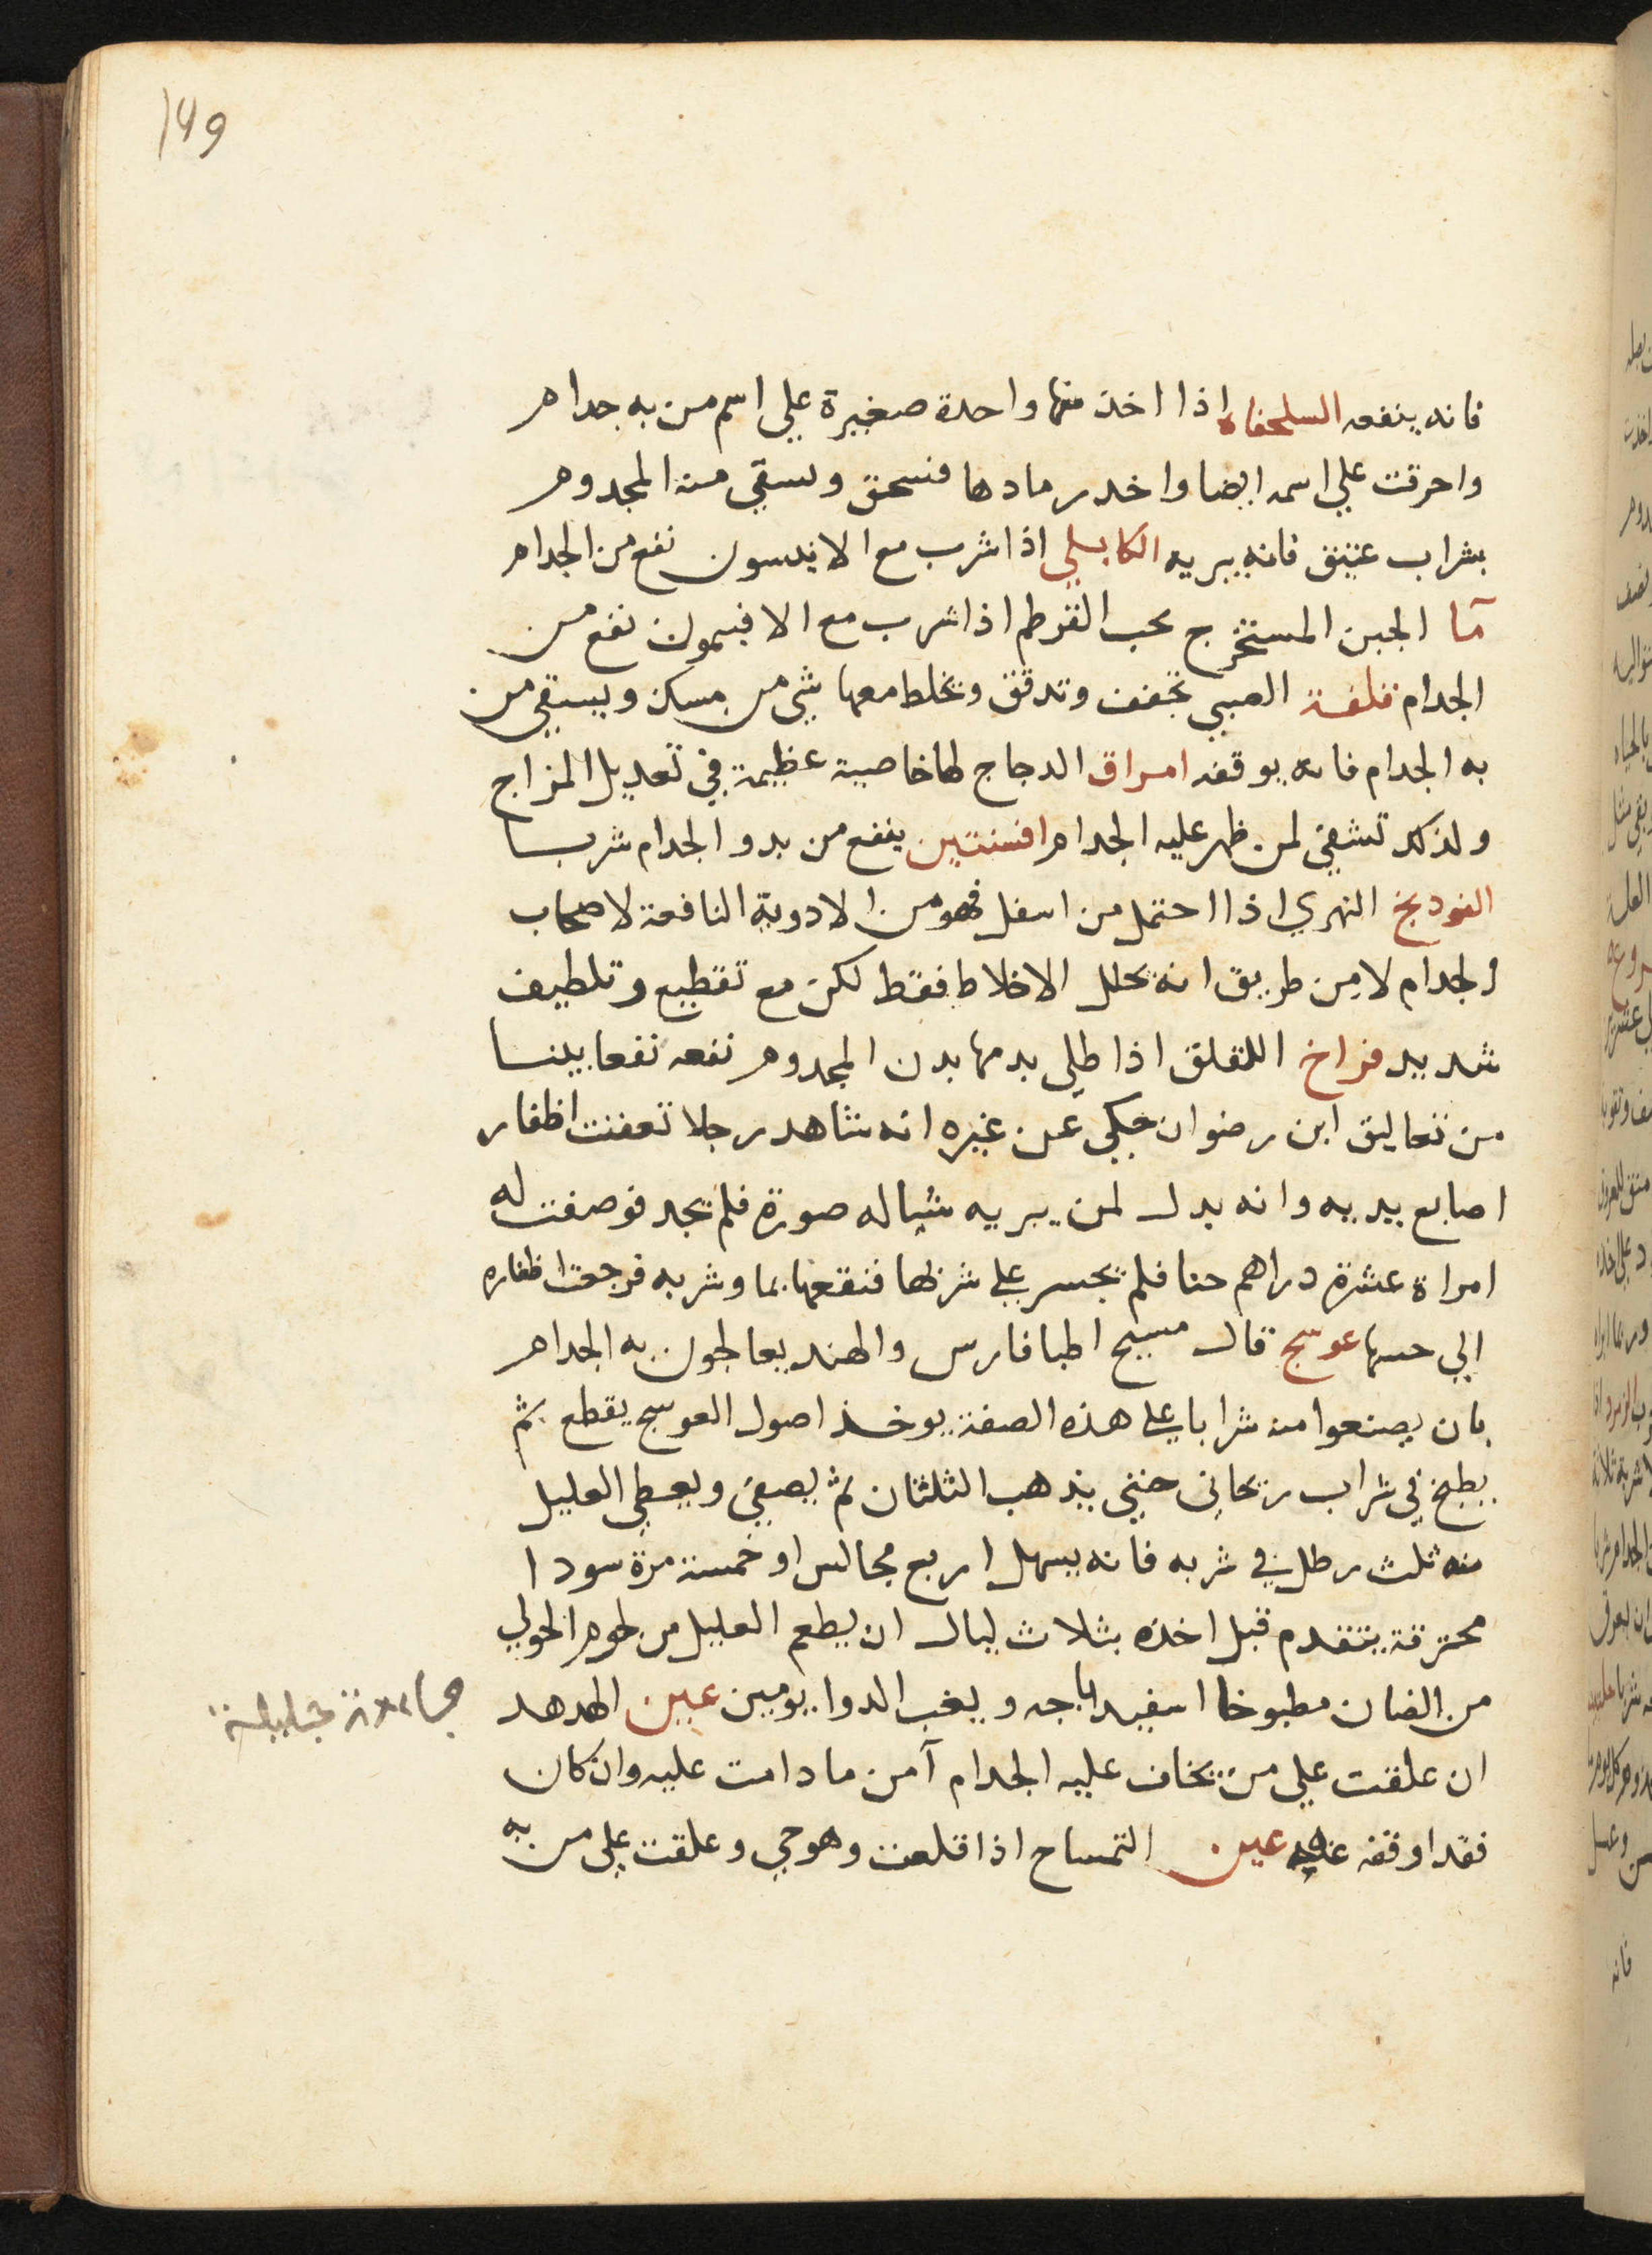 149
فانه ينفعه السلحفاه اذا اخذ منها واحدة صغيرة علي اسم من به جدام
واحرقت علي اسمه ايضا واخد رمادها فسحق وسقي منه المجدوم
بشراب عتيق فانه يبريه الكابلي اذا شرب مع الانيسون نفع من الجدام
مآ الجبن المستخرج بحب القرطم اذا شرب مع الافيمون نفع من
الجدام قلفة الصبي تجفف وتدقق وتخلط معها شي من مسك ويسقي من
به الجدام فانه يوقفه امراق الدجاج لها خاصية عظيمة في تعديل المزاج
ولذلك تشفي لمن ظهر عليه الجدام افسنتين ينفع من بدو الجدام شربا
الفودنج النهري اذا احتمل من اسفل فهو من الادوية النافعة لاصحاب
الجدام لا من طريق انه يحلل الاخلاط فقط لكن مع تقطيع وتلطيف
شديد فراخ اللقلق اذا طلي بدمها بدن المجدوم نفعه نفعا بينا
من تعاليق ابن رضوان حكي عن غيره انه شاهد رجلا تعفنت اظفار
اصابع يديه وانه بدل لمن يبريه شياله صورة فلم يجد فوصفت له
امراة عشرة دراهم حنا فلم يجسر علي شربها فنقعها بما وشربه فرجعت اظفاره
الي حسنها عوسج قال مسيح اطبا فارس والهند يعالجون به الجدام
بان يصنعوا منه شرابا علي هذه الصفة يوخذ اصول العوسج يقطع ثم
يطبخ في شراب ريحاني حتي يذهب الثلثان ثم يصفي ويعطي العليل
منه ثلث رطل في شربه فانه يسهل اربع مجالس او خمسة مرة سودا
محترقة يتقدم قبل اخذه بثلاث ليال ان يطعم العليل من لحوم الحولي
من الضان مطبوخا اسفيداباجه ويغب الدوا يومين عين الهدهد
ان علقت علي من يخاف عليه الجدام آمن ما دامت عليه وان كان
فقد اوقفه عليه عين التمساح اذا قلعت وهو حي وعلقت علي من به
جليلة